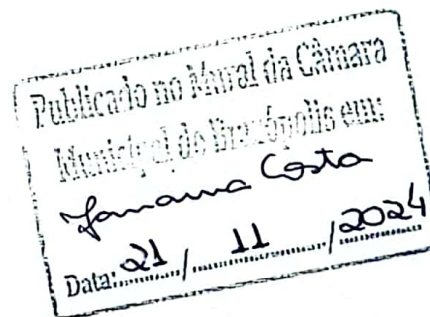 Publicado no Mural da Câmara
Municipal de Brazópolis em:
Janaina Costa
Data: 21 / 11 / 2024